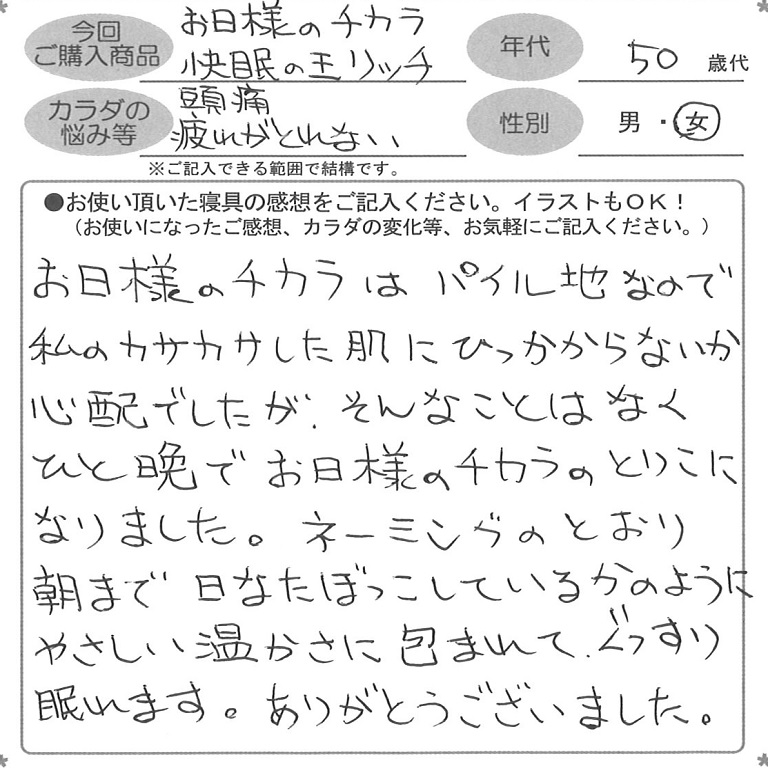 今回
ご購入商品
お日様のチカラ
快眠の王リッチ
年代
50 歳代
カラダの
悩み等
頭痛
疲れがとれない
性別
男・女
※ご記入できる範囲で結構です。
●お使い頂いた寝具の感想をご記入ください。イラストもOK!
(お使いになったご感想、カラダの変化等、お気軽にご記入ください。)
お日様のチカラは パイル地なので
私のカサカサした肌にひっかからないか
心配でしたが、そんなことはなく
ひと晩でお日様のチカラのとりこに
なりました。ネーミングのとおり
朝まで 日なたぼっこしているかのように
やさしい温かさに包まれて、ぐっすり
眠れます。ありがとうございました。